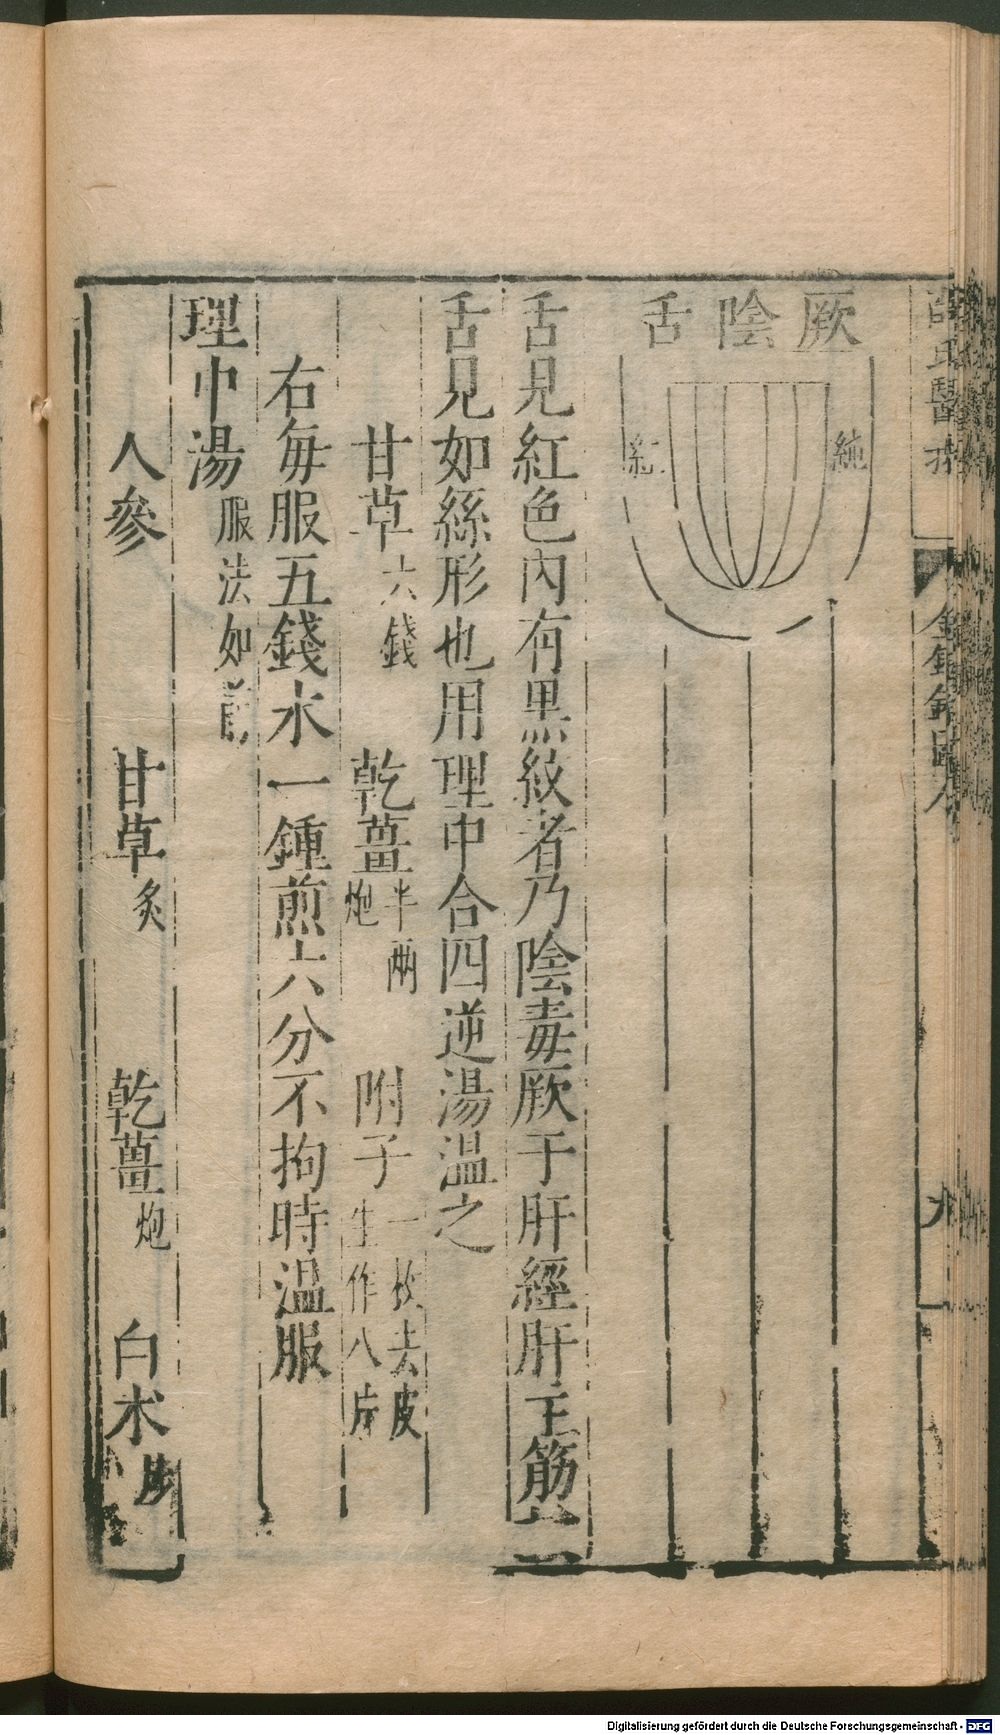 厥陰舌
純
紅
舌見紅色內有黑紋者乃陰毒厥于肝經肝主筋
舌見如絲形也用理中合四逆湯溫之
甘草六錢 乾薑半兩炮 附子一枚去皮生作八片
右每服五錢水一鍾煎六分不拘時溫服
理中湯服法如前
人參 甘草炙 乾薑炮 白朮
九
Digitalisierung gefördert durch die Deutsche Forschungsgemeinschaft - DFG